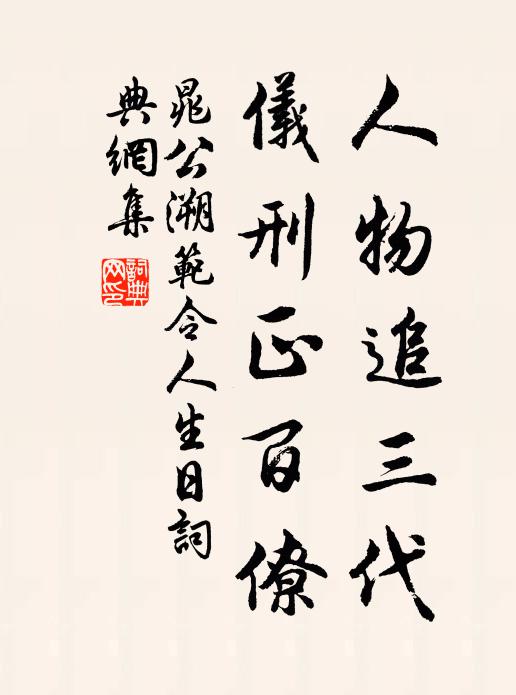 人物追三代
儀刑正百僚
晁公溯範令人生日詞
典網集
詞典
网印